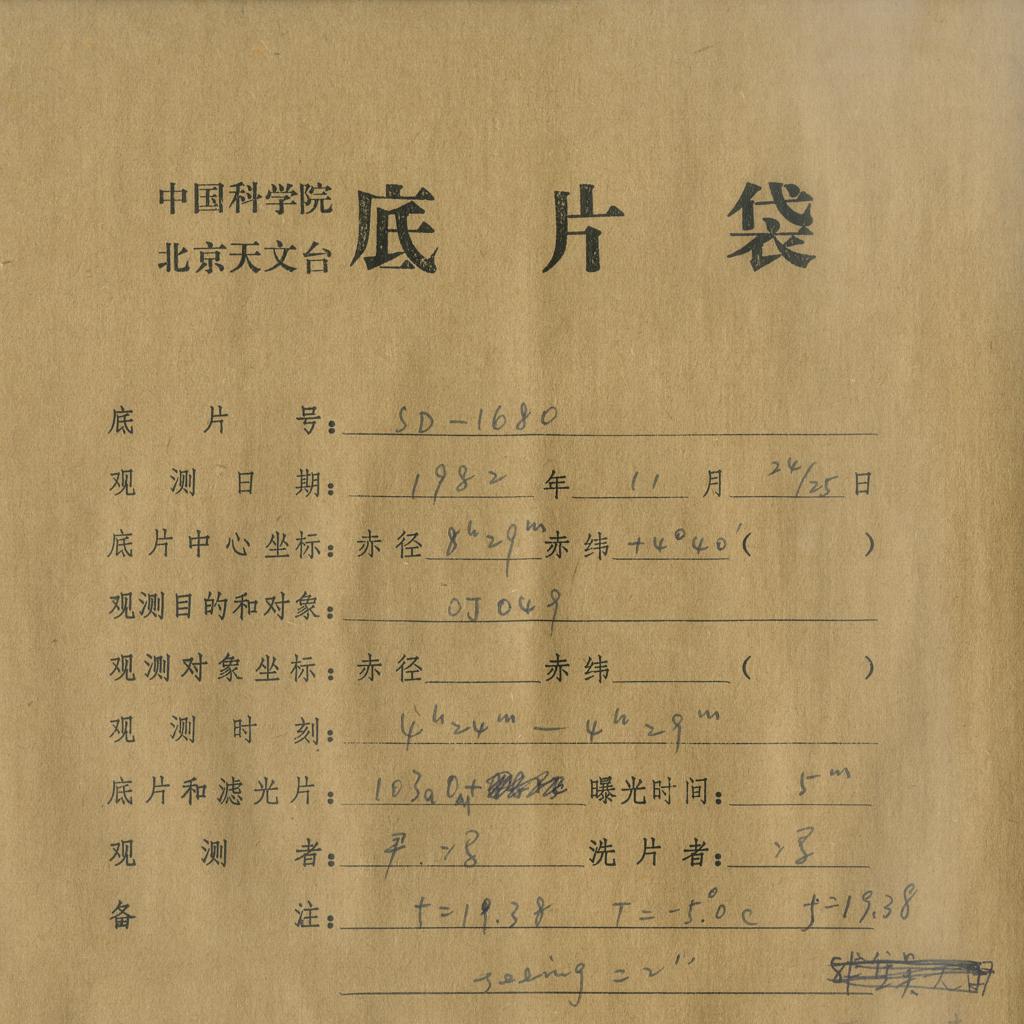 中国科学院
北京天文台
底片袋
底片号: SD-1680
观测日期: 1982年 11月 24/25日
底片中心坐标: 赤径 8h29m 赤纬 +4°40′ ( )
观测目的和对象: OJ 049
观测对象坐标: 赤径 赤纬 ( )
观测时刻: 4h24m — 4h29m
底片和滤光片: 103aO 曝光时间: 5m
观测者: 尹. 洗片者:
备注: f=19.38 T=-5.°0c f=19.38
seeing = 2″